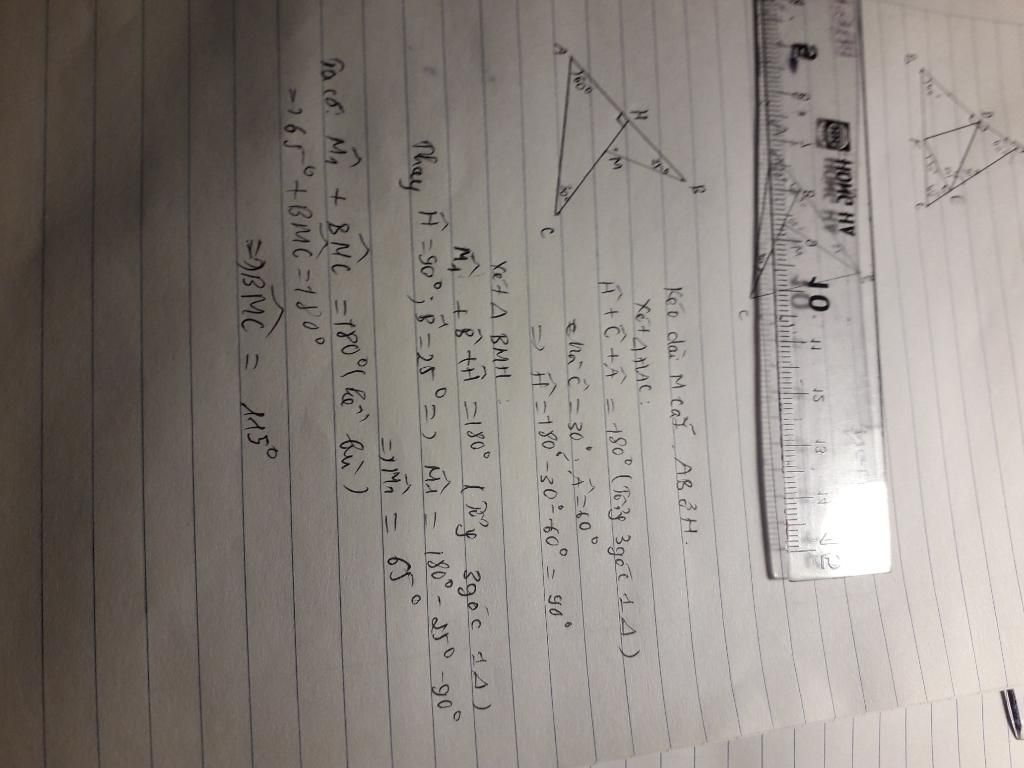 A
B
H
M
C
60°
30°
Kéo dài M cắt AB ở H.
Xét Δ HAC:
Ĥ + Ĉ + Â = 180° (Tổng 3 góc 1 Δ)
Ĉ = 30°; Â = 60°
=> Ĥ = 180° - 30° - 60° = 90°
Xét Δ BMH:
M̂₁ + B̂ + Ĥ = 180° (Tổng 3 góc 1 Δ)
Thay Ĥ = 90°; B̂ = 25° => M̂₁ = 180° - 25° - 90°
=> M̂₁ = 65°
Ta có M̂₁ + BMC = 180° (kề bù)
=> 65° + BMC = 180°
=> BMC = 115°
10
11
12
13
14